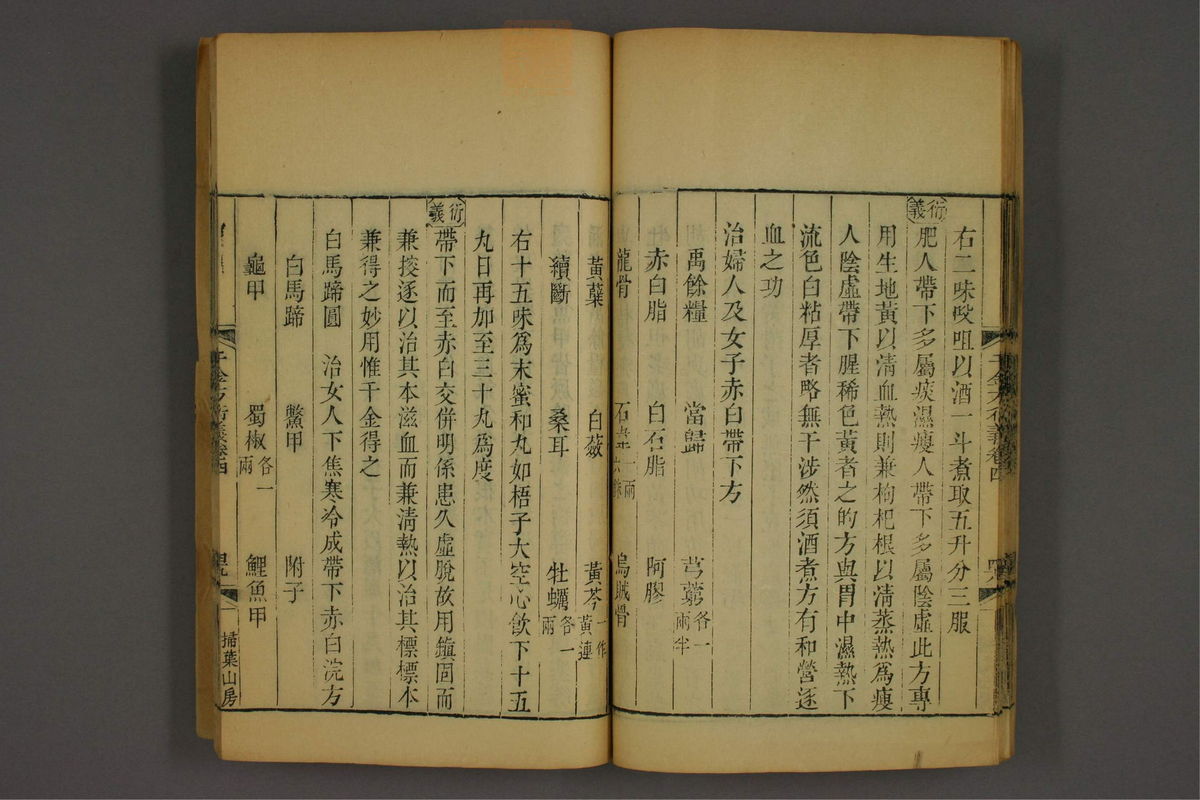 右二味㕮咀以酒一斗煮取五升分三服
衍義
肥人帶下多屬痰濕瘦人帶下多屬陰虛此方專
用生地黃以清血熱則兼枸杞根以清蒸熱爲瘦
人陰虛帶下腥稀色黃者之的方與胃中濕熱下
流色白粘厚者略無干涉然須酒煮方有和營逐
血之功
治婦人及女子赤白帶下方
禹餘糧 當歸 芎藭各一兩半
赤白脂 白石脂 阿膠
龍骨 石韋一兩六銖 烏賊骨
黃蘗 白蘞 黃芩一作黃連
續斷 桑耳 牡蠣各一兩
右十五味爲末蜜和丸如梧子大空心飮下十五
丸日再加至三十丸爲度
衍義
帶下而至赤白交併明係患久虛脫故用鎭固而
兼按逐以治其本滋血而兼清熱以治其標標本
兼得之妙用惟千金得之
白馬蹄圓 治女人下焦寒冷成帶下赤白浣方
白馬蹄 鱉甲 附子
龜甲 蜀椒各一兩 鯉魚甲
千金方衍義卷四
掃葉山房